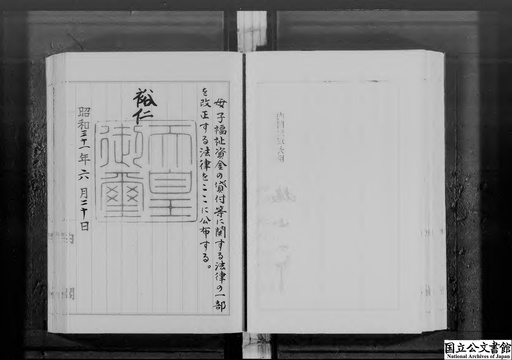 母子福祉資金の貸付等に関する法律の一部
を改正する法律をここに公布する。
裕仁
天皇
御璽
昭和三十一年六月二十日
内閣
国立公文書館
National Archives of Japan